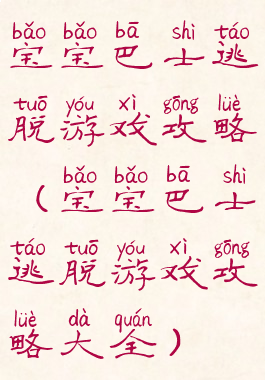 bǎo bǎo bā shì táo
宝宝巴士逃
tuō yóu xì gōng lüè
脱游戏攻略
bǎo bǎo bā shì
（宝宝巴士
táo tuō yóu xì gōng
逃脱游戏攻
lüè dà quán
略大全）